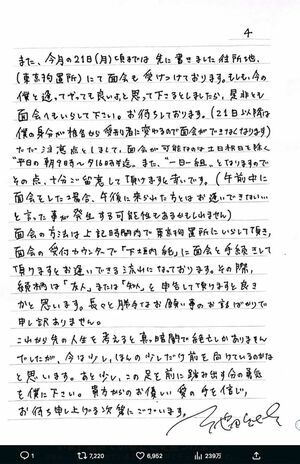 4
また、今月の21日(月)頃までは先に書きました住所地、
(東京拘置所)にて面会も受けつけております。もしも、今の
僕と逢ってやっても良いよ、と思って下さるとしましたら、是非とも
面会へもいらして下さい。お待ちしております。(21日以降は
僕の身分が被告から受刑者に変わるので面会ができなくなります)
ただ注意点としまして、面会が可能なのは土日祝日を除く
"平日の朝9時〜夕16時半迄。また、"一日一組"となりますので
その点、十分ご留意して頂けますと幸いです。(午前中に
面会をした場合、午後に来られた方とはお逢いできない…
と言った事が発生する可能性もあるかもしれません)
面会の方法は上記時間内で東京拘置所にいらして頂き、
面会の受付カウンターで「下垣内 組」に面会と手続きして
頂けますとお逢いできる流れになっております。その際、
続柄は「友人」または「知人」を申告して頂けますと良き
かと思います。長々と勝手なお願い事のお話ばかりで
申し訳ありません。
これから先の人生を考えると真っ暗闇で絶望しかありません
でしたが、今は少し、ほんの少しだけ前を向けているのかな
と思います。あと少し、この足を前に踏み出す分の勇気
を僕に下さい。貴方からのお優しい愛の手を信じ、
お待ち申し上げる次第にございます。
1 7,220 6,952 239万